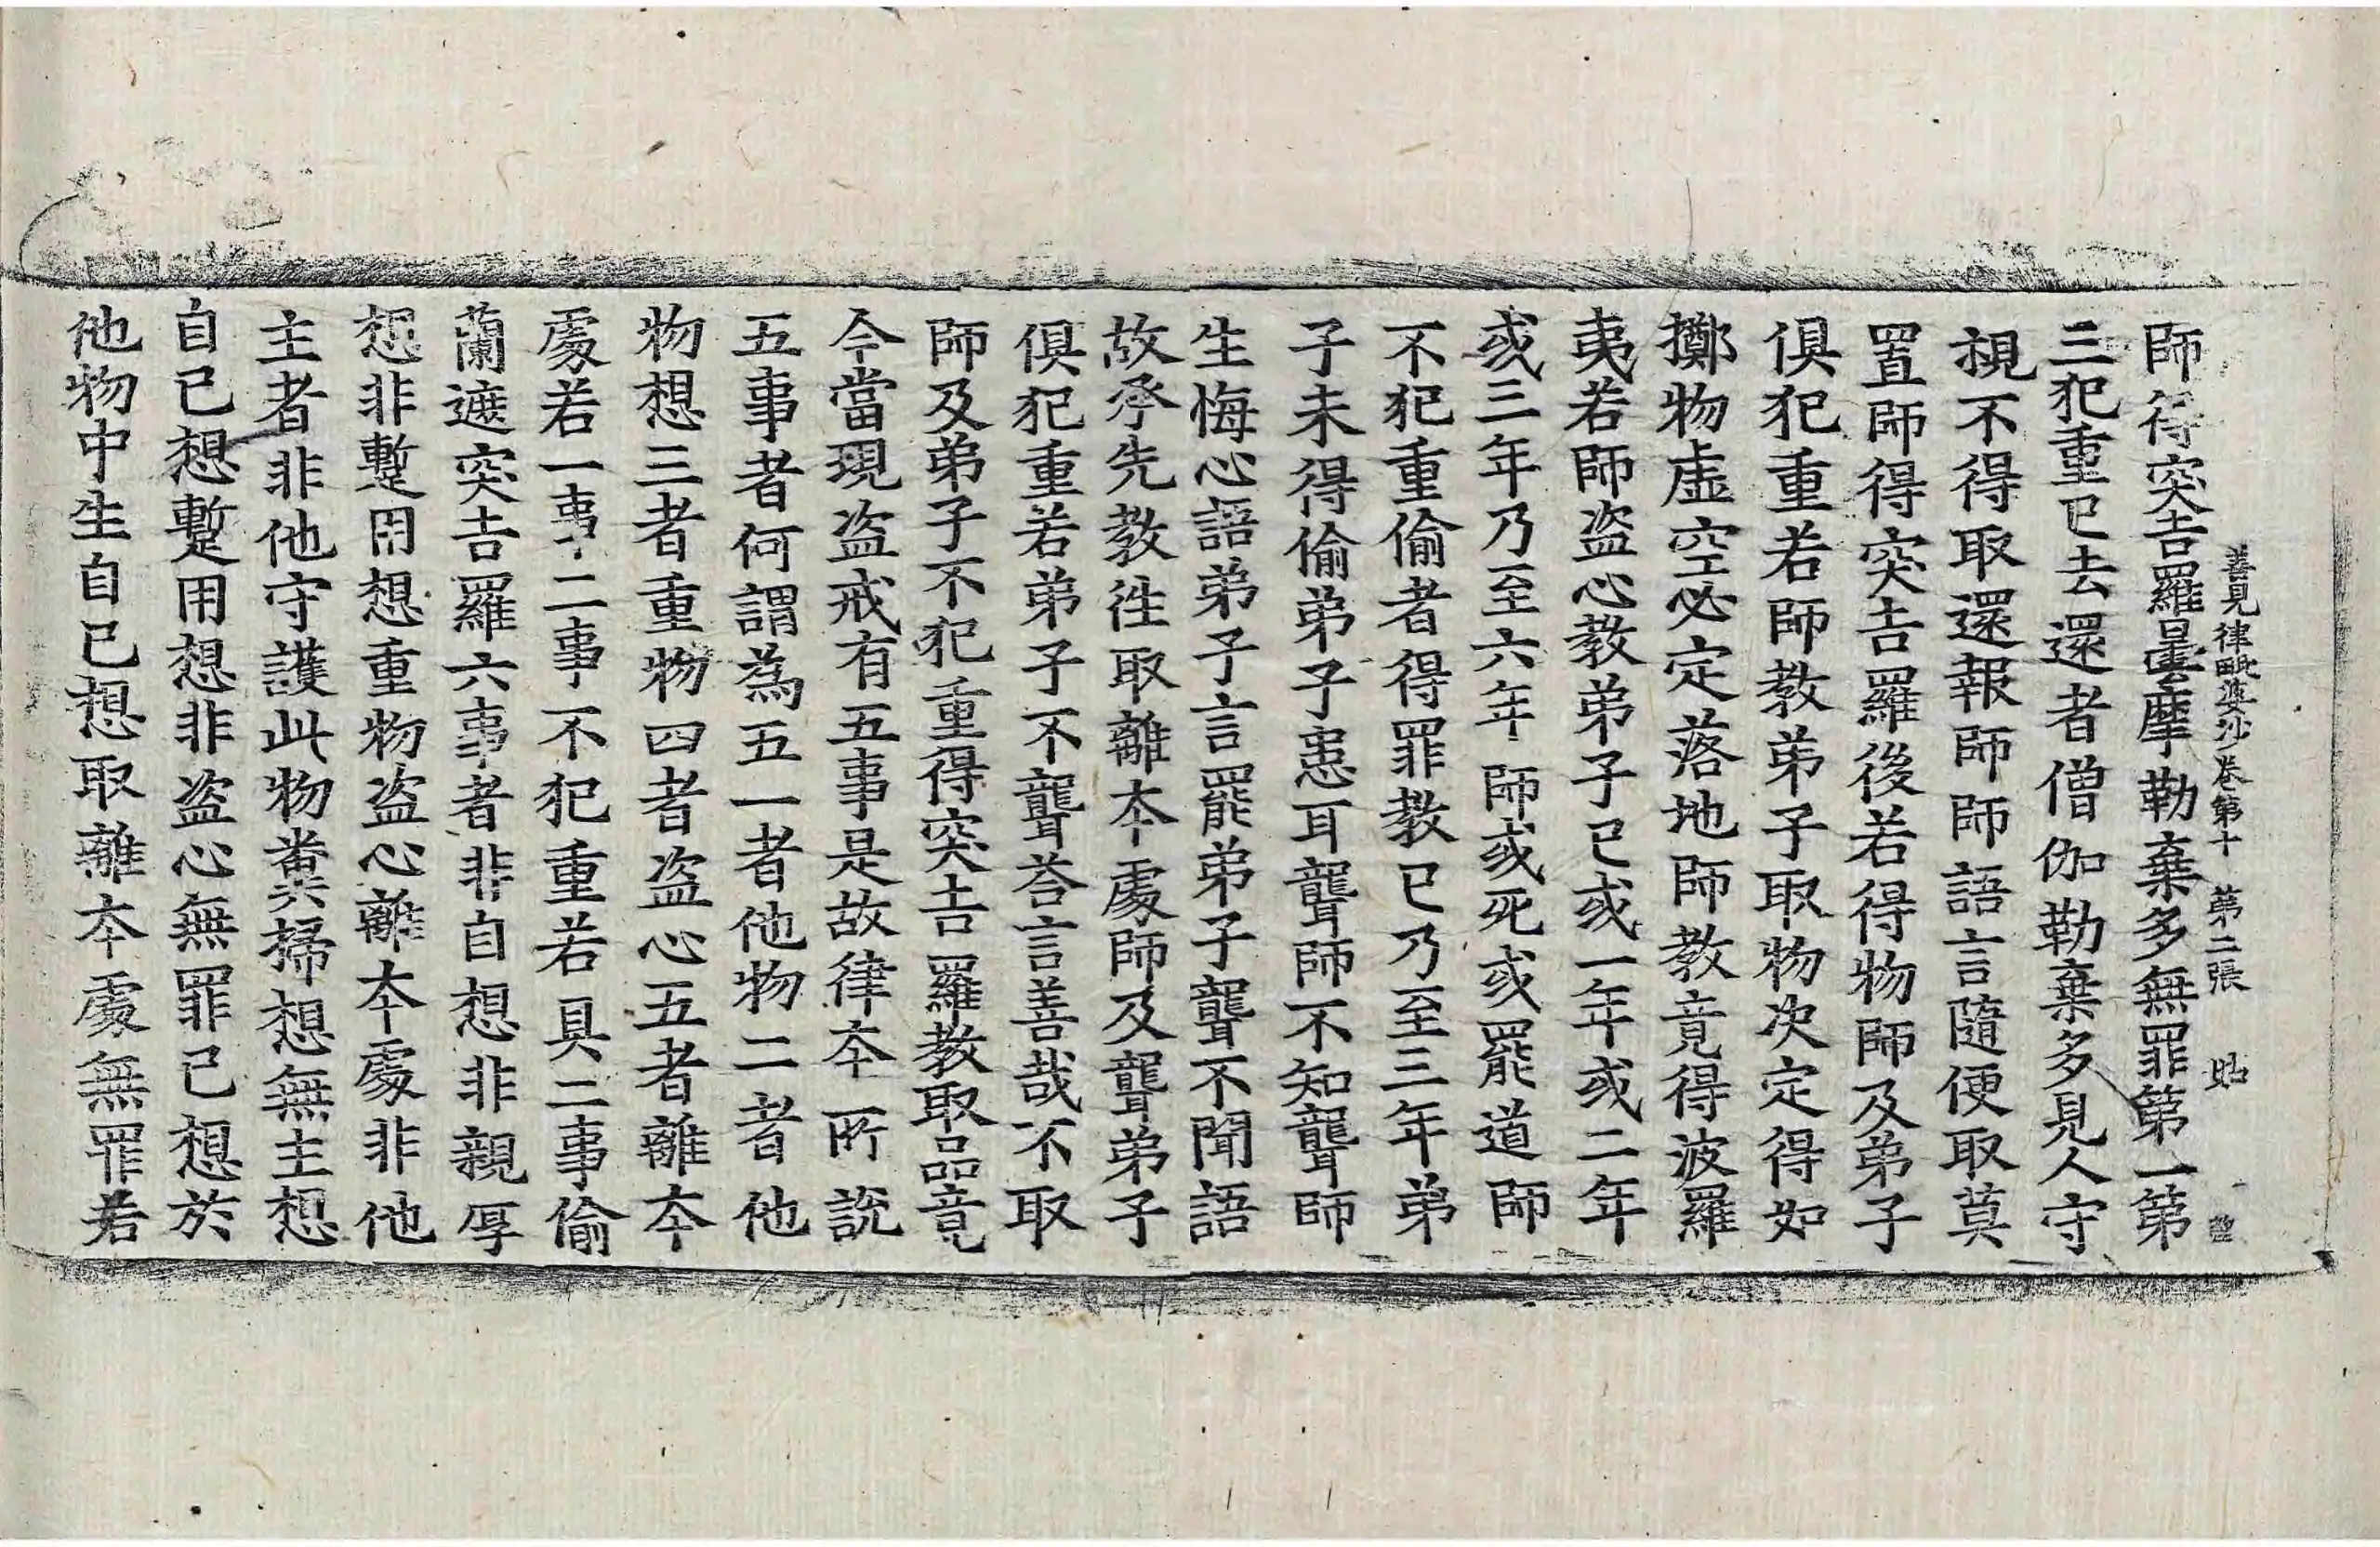 善見律毗婆沙卷第十　第二張　㱔
師得突吉羅曇摩勒棄多無罪第一第
三犯重已去還者僧伽勒棄多見人守
視不得取還報師師語言隨便取莫
置師得突吉羅後若得物師及弟子
俱犯重若師教弟子取物決定得如
擲物虛空必定落地師教竟得波羅
夷若師盜心教弟子已或一年或二年
或三年乃至六年師或死或罷道師
不犯重偷者得罪教已乃至三年弟
子未得偷弟子患耳聾師不知聾師
生悔心語弟子言罷弟子聾不聞語
故承先教徃取離本處師及聾弟子
俱犯重若弟子不聾荅言善哉不取
師及弟子不犯重得突吉羅教取品竟
今當現盜戒有五事是故律本所說
五事者何謂為五一者他物二者他
物想三者重物四者盜心五者離本
處若一事二事不犯重若具二事偷
蘭遮突吉羅六事者非自想非親厚
想非蹔用想重物盜心離本處非他
主者非他守護此物糞掃想無主想
自己想蹔用想非盜心無罪已想於
他物中生自已想取離本處無罪若